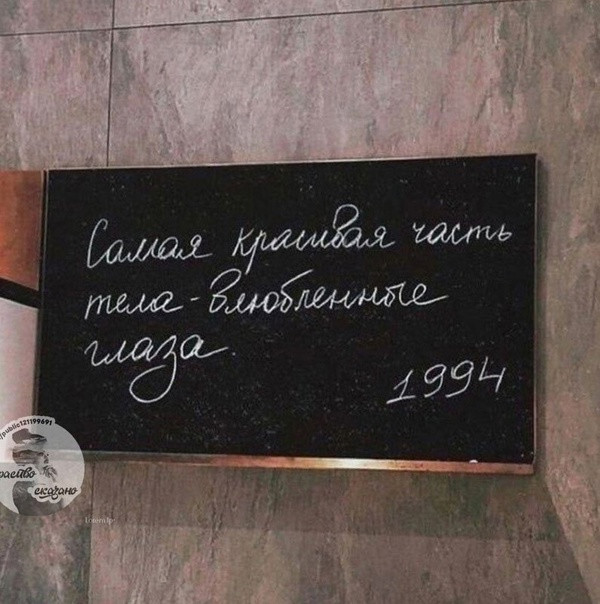 Самая красивая часть
тела - Влюбленные
глаза.
1994
/public121199691
сказано